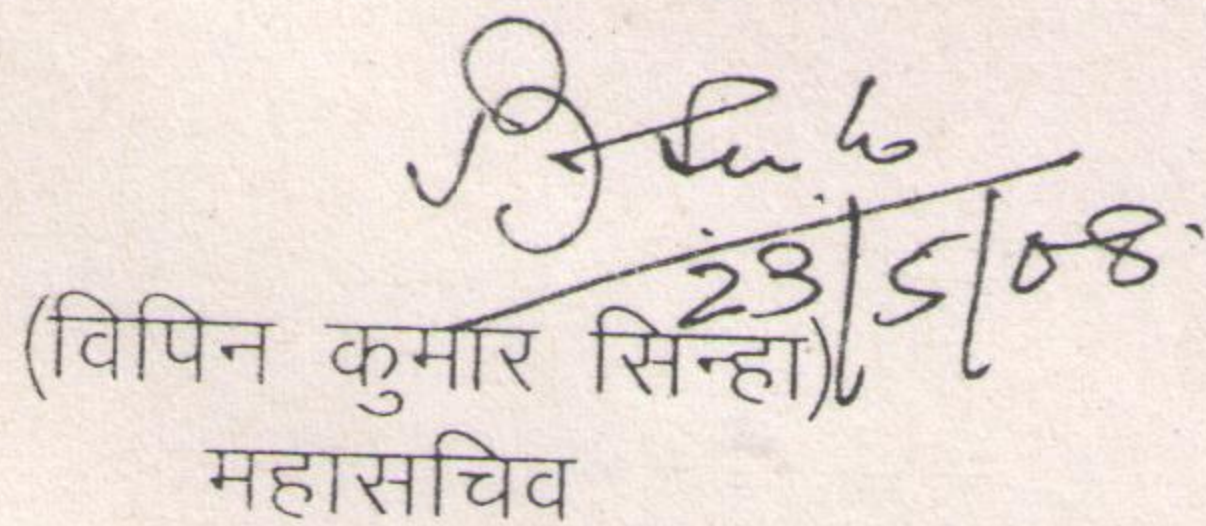 23/5/08
(विपिन कुमार सिन्हा)
महासचिव